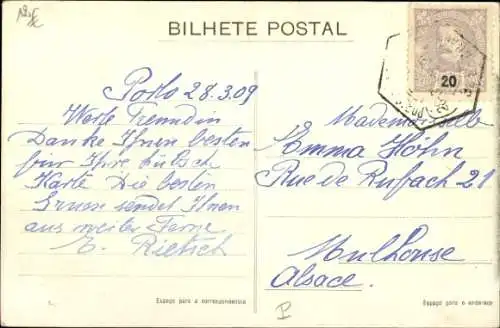 BILHETE POSTAL
20
Porto 28.3.09
Werte Freundin
Danke Ihnen besten
für Ihre hübsch
Karte Die besten
Grüsse sendet Ihnen
aus weiter Ferne
E. Rietsch
Mademoiselle
Emma Hohn
Rue de Rufach 21
Mulhouse
Alsace.
Espaço para a correspondencia
Espaço para o endereço